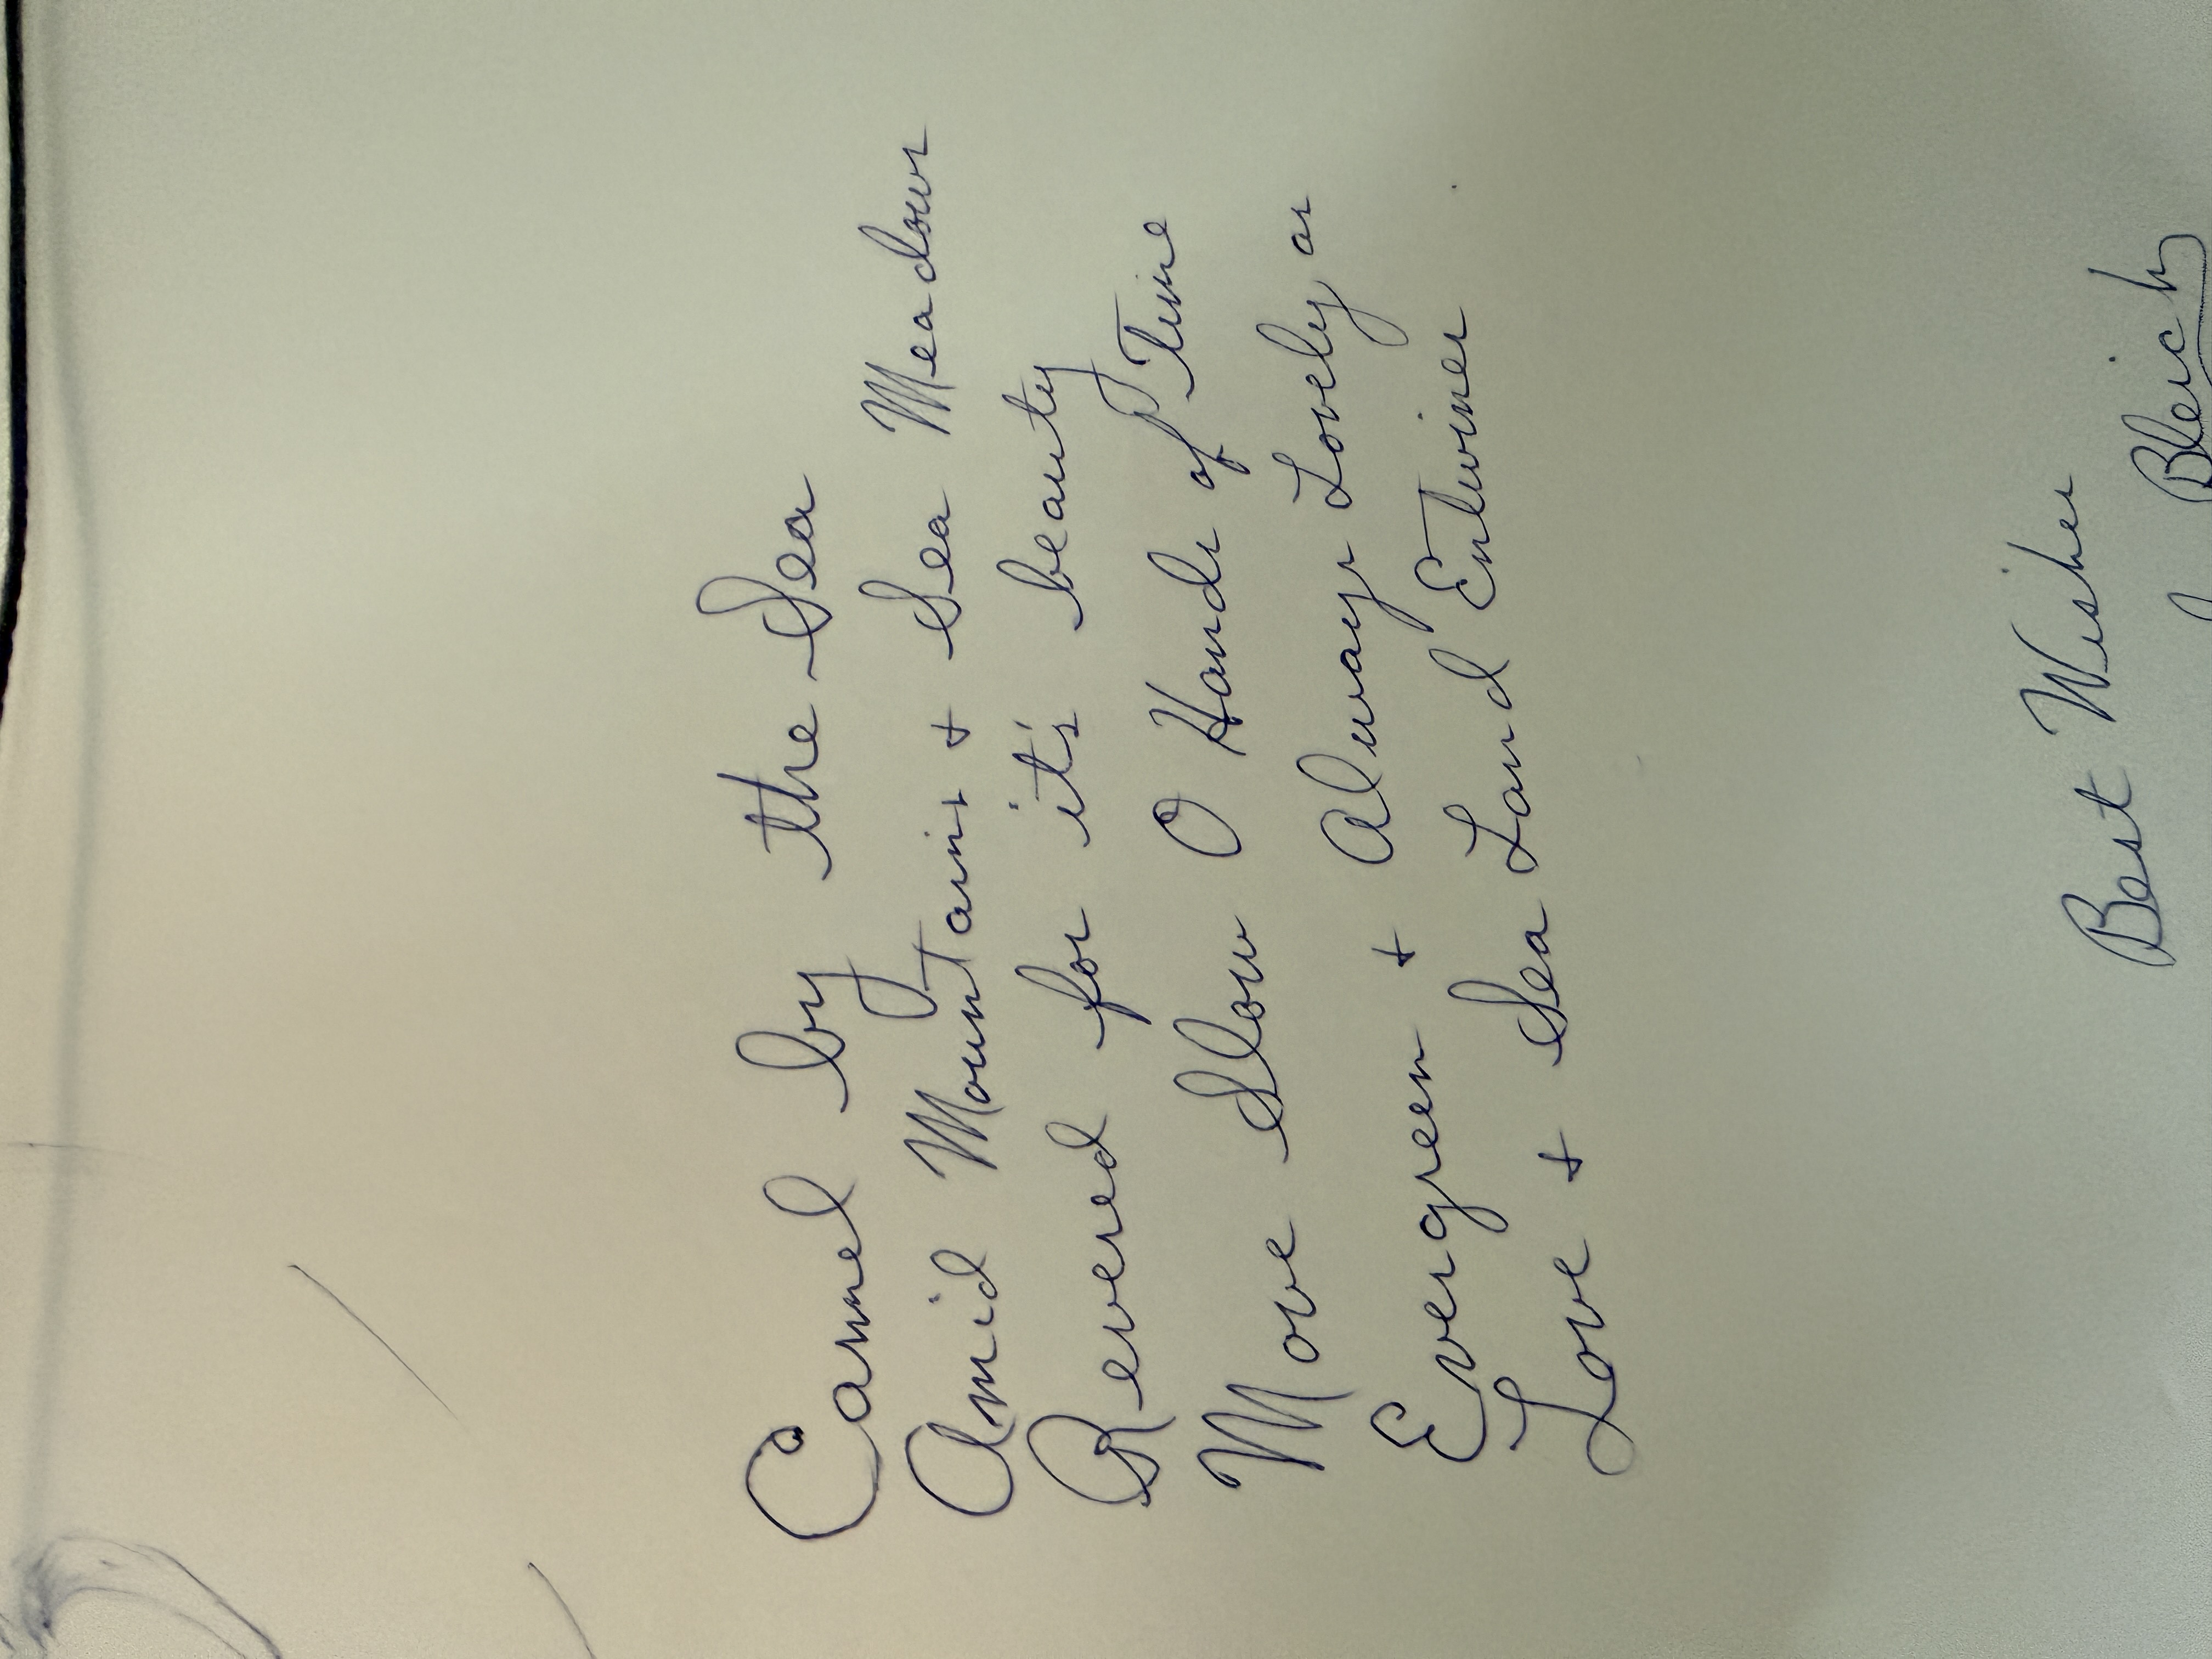 Carmel by the Sea
Amid Mountains + Sea Meadows
Revered for it's beauty
Move Slow O Hands of Time
Evergreen + Always Lovely as
Love + Sea Land Entwines
Best Wishes
Bleich